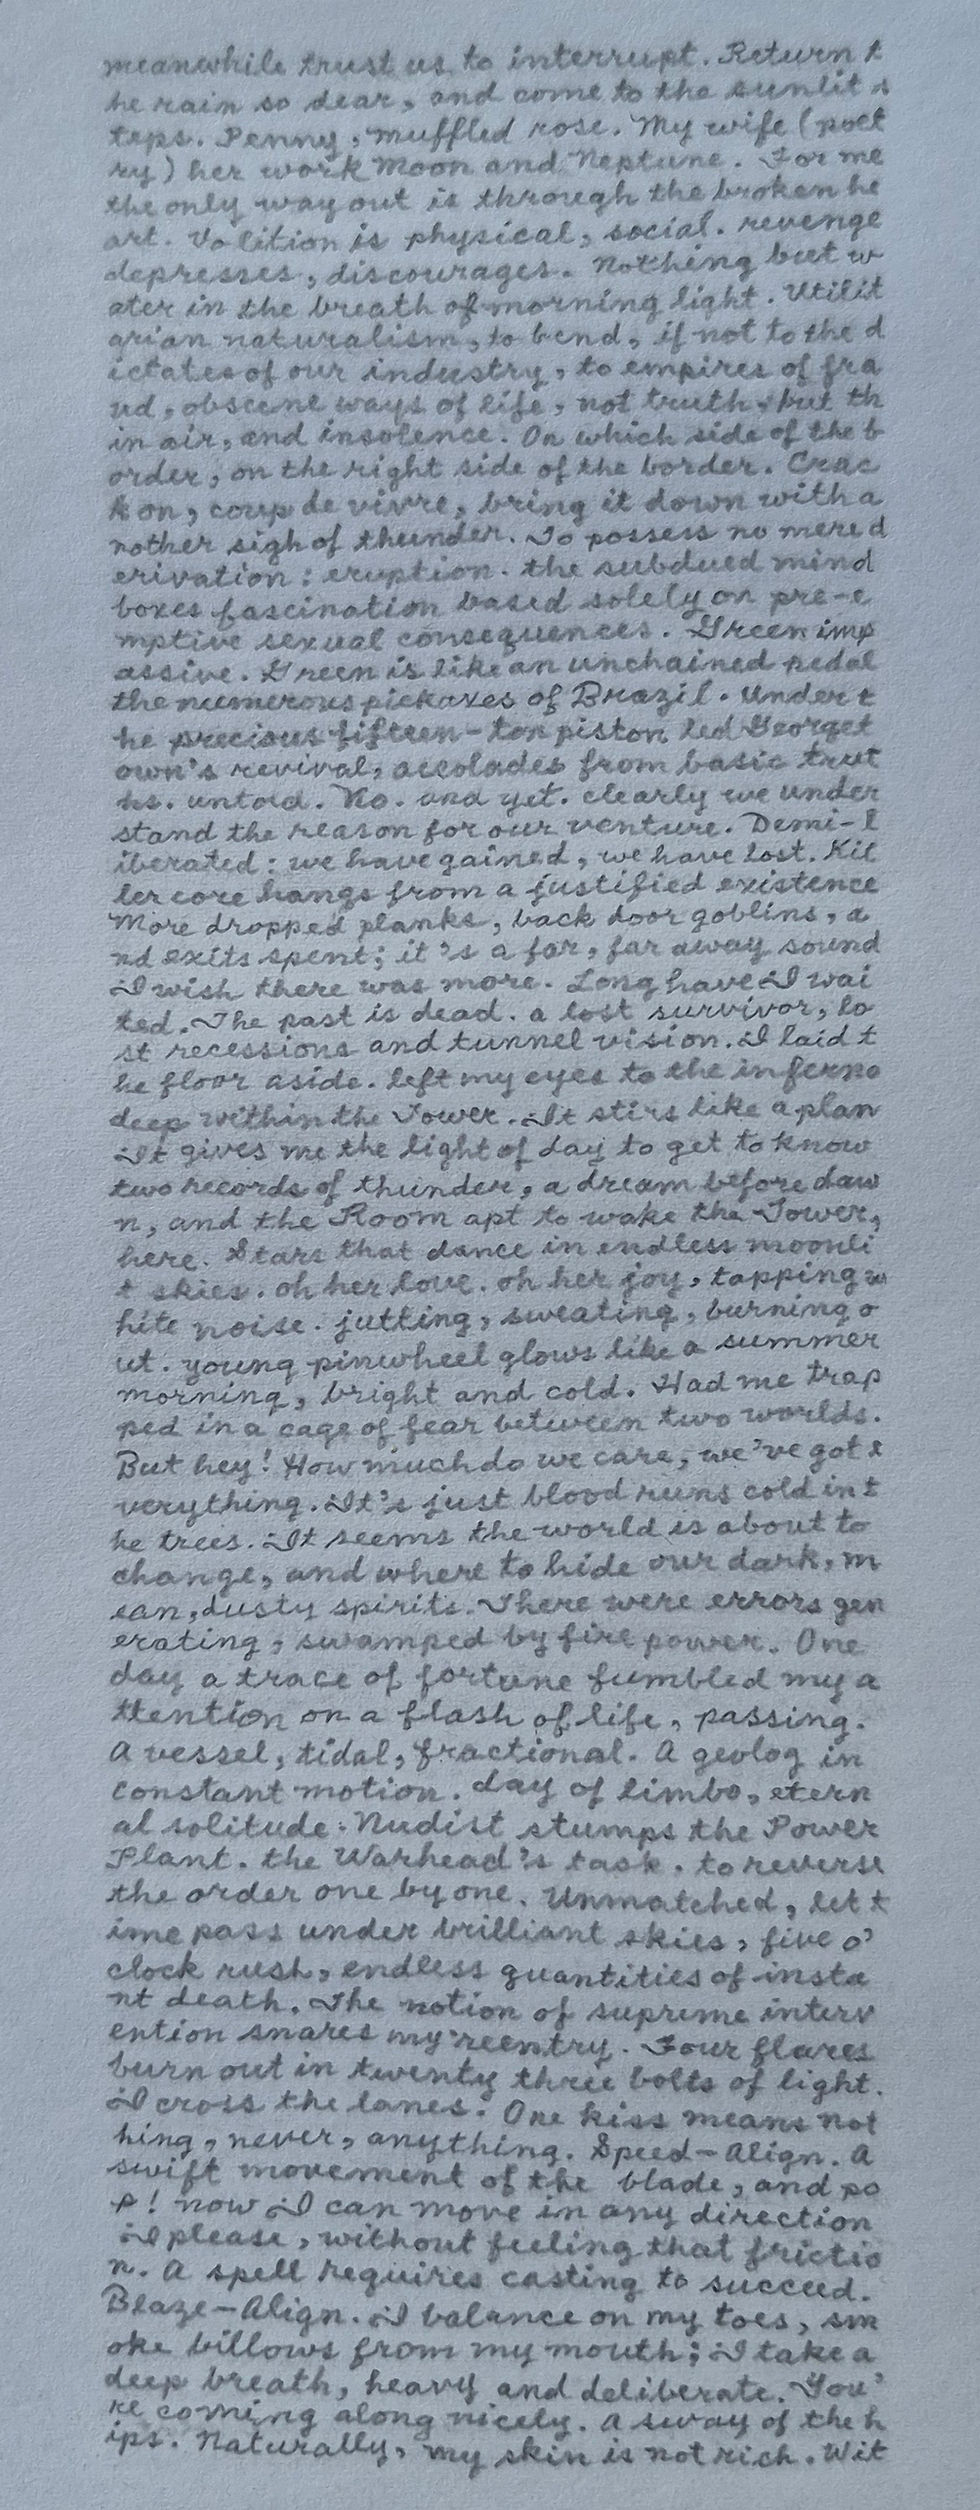 meanwhile trust us to interrupt. Return t
he rain so dear, and come to the sunlit s
teps. Penny, muffled rose. My wife (poet
ry) her work Moon and Neptune. For me
the only way out is through the broken he
art. Volition is physical, social. revenge
depresses, discourages. Nothing but w
ater in the breath of morning light. Utilit
arian naturalism, to bend, if not to the d
ictates of our industry, to empires of fra
ud, obscene ways of life, not truth, but th
in air, and insolence. On which side of the b
order, on the right side of the border. Crac
k on, coup de vivre, bring it down with a
nother sigh of thunder. To possess no mere d
erivation: eruption. the subdued mind
boxes fascination based solely on pre-e
mptive sexual consequences. Green imp
assive. Green is like an unchained pedal
the numerous pickaxes of Brazil. Under t
he precious fifteen-ton piston led Georget
own's revival, accolades from basic trut
hs. untold. No. and yet. clearly we under
stand the reason for our venture. Demi-l
iberated: we have gained, we have lost. Kil
ler core hangs from a justified existence
More dropped planks, back door goblins, a
nd exits spent; it's a far, far away sound
I wish there was more. Long have I wai
ted. The past is dead. a lost survivor, lo
st recessions and tunnel vision. I laid t
he floor aside. left my eyes to the inferno
deep within the Tower. It stirs like a plan
It gives me the light of day to get to know
two records of thunder, a dream before daw
n, and the Room apt to wake the Tower,
here. Stars that dance in endless moonli
t skies. oh her love. oh her joy, tapping w
hite noise. jutting, sweating, burning o
ut. young pinwheel glows like a summer
morning, bright and cold. Had me trap
ped in a cage of fear between two worlds.
But hey! How much do we care, we've got e
verything. It's just blood runs cold in t
he trees. It seems the world is about to
change, and where to hide our dark, m
ean, dusty spirits. There were errors gen
erating, swamped by fire power. One
day a trace of fortune fumbled my a
ttention on a flash of life, passing.
A vessel, tidal, fractional. A geolog in
constant motion. day of limbo, etern
al solitude. Nudist stumps the Power
Plant. the Warhead's task. to reverse
the order one by one. Unmatched, let t
ime pass under brilliant skies, five o'
clock rush, endless quantities of insta
nt death. The notion of supreme interv
ention snares my reentry. Four flares
burn out in twenty three bolts of light.
I cross the lanes. One kiss means not
hing, never, anything. Speed-Align. A
swift movement of the blade, and po
p! now I can move in any direction
I please, without feeling that frictio
n. A spell requires casting to succeed.
Blaze-Align. I balance on my toes, sm
oke billows from my mouth; I take a
deep breath, heavy and deliberate. You'
re coming along nicely. A sway of the h
ips. Naturally, my skin is not rich. Wit